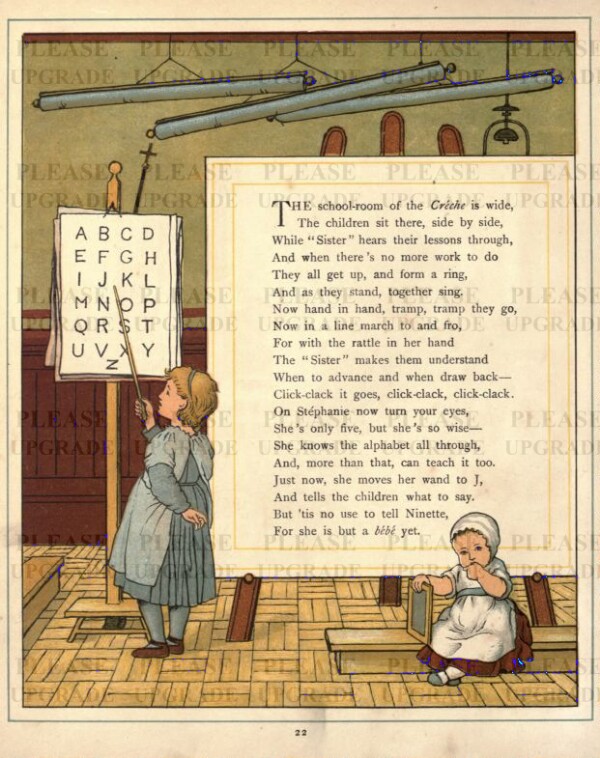 PLEASE PLEASE PLEASE PLEASE PLEASE
UPGRADE UPGRADE UPGRADE UPGRADE UPGRADE
A B C D
E F G H
I J K L
M N O P
Q R S T
U V X Y
Z
THE school-room of the Crèche is wide,
The children sit there, side by side,
While "Sister" hears their lessons through,
And when there's no more work to do
They all get up, and form a ring,
And as they stand, together sing,
Now hand in hand, tramp, tramp they go,
Now in a line march to and fro,
For with the rattle in her hand
The "Sister" makes them understand
When to advance and when draw back—
Click-clack it goes, click-clack, click-clack.
On Stéphanie now turn your eyes,
She's only five, but she's so wise—
She knows the alphabet all through,
And, more than that, can teach it too.
Just now, she moves her wand to J,
And tells the children what to say.
But 'tis no use to tell Ninette,
For she is but a bébé yet.
22